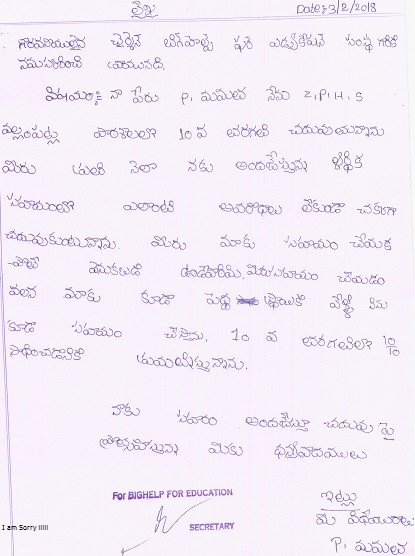 లేఖ
Date: 3/2/2018
గౌరవనీయులైన చైర్మెన్ బిగ్‌హెల్ప్ ఫర్ ఎడ్యుకేషన్ సంస్థ గారికి
నమస్కరించి వ్రాయునది.
విషయం:- నా పేరు P. మమత నేను Z.P.H.S
పల్లంపట్లు పాఠశాలలో 10 వ తరగతి చదువుతున్నాను
మీరు ప్రతి నెలా నకు అందజేస్తున్న ఆర్థిక
సహాయంతో ఎలాంటి అవరోధాలు లేకుండా చక్కగా
చదువుకుంటున్నాను. మీరు మాకు సహాయం చేయక
-పోతే వెనుకబడి ఉండేవారిమి. మీరు సహాయం చేయడం
వలన మాకు కూడా పెద్ద స్థాయికి వెళ్ళి మేము
కూడా సహాయం చేస్తాము. 10 వ తరగతిలో 10/10
సాధించడానికి ప్రయత్నిస్తున్నాను.
నాకు సహకారం అందజేస్తూ చదువు పై
ప్రోత్సహిస్తున్న మీకు ధన్యవాదములు
For BIGHELP FOR EDUCATION
SECRETARY
I am Sorry !!!!!
ఇట్లు
మీ విధేయురాలు
P. మమత